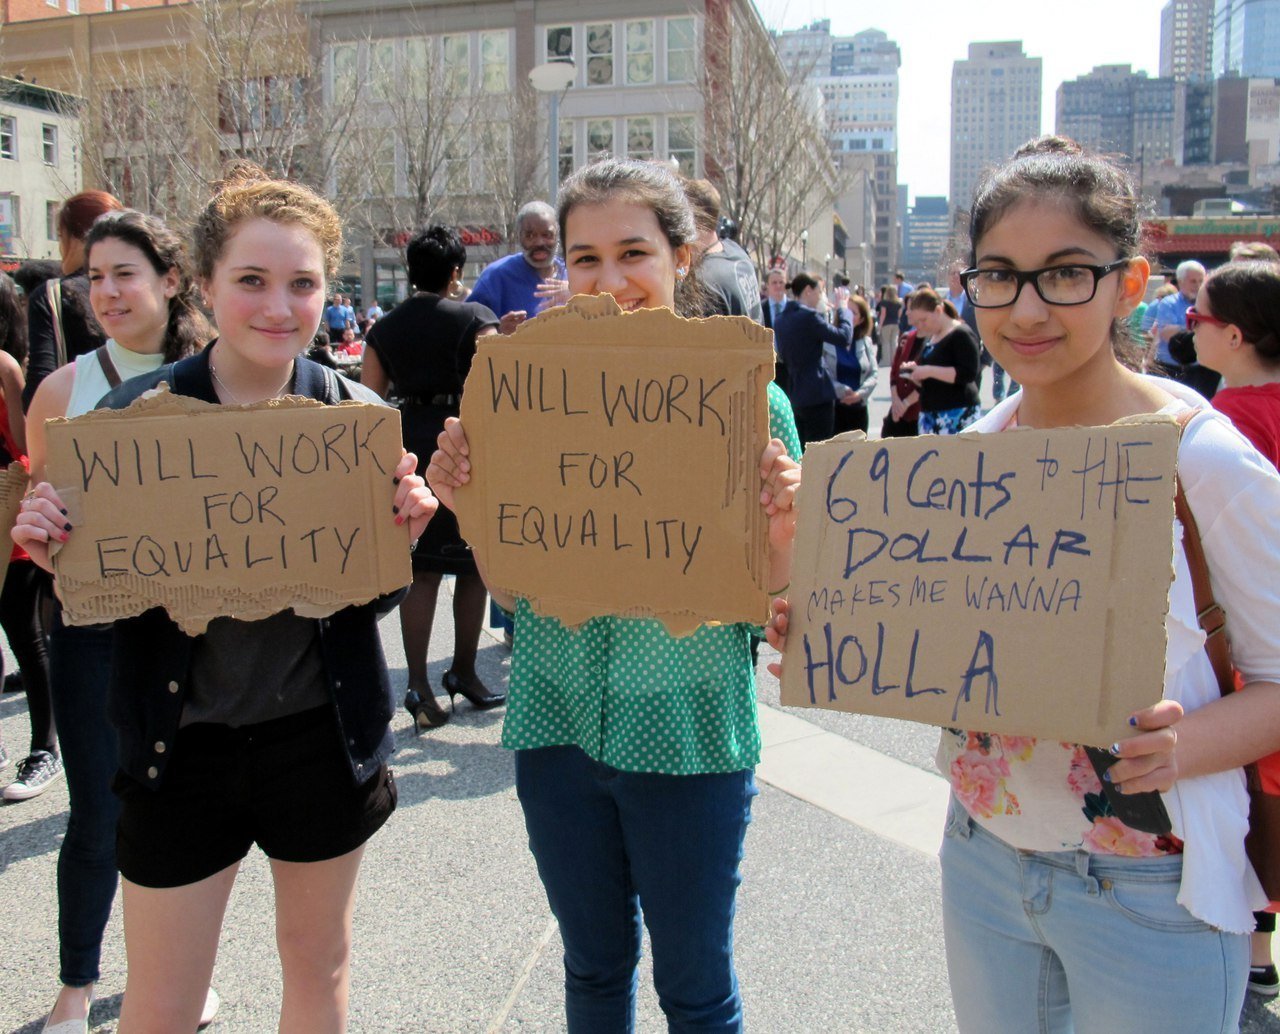 WILL WORK
FOR
EQUALITY
WILL WORK
FOR
EQUALITY
69 Cents to THE
DOLLAR
MAKES ME WANNA
HOLLA